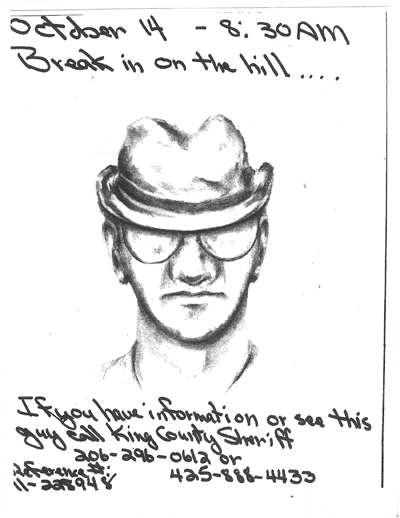 October 14 - 8:30AM
Break in on the hill....
If you have information or see this
guy call King County Sheriff
206-296-0612 or
Reference #: 425-888-4433
11-228948